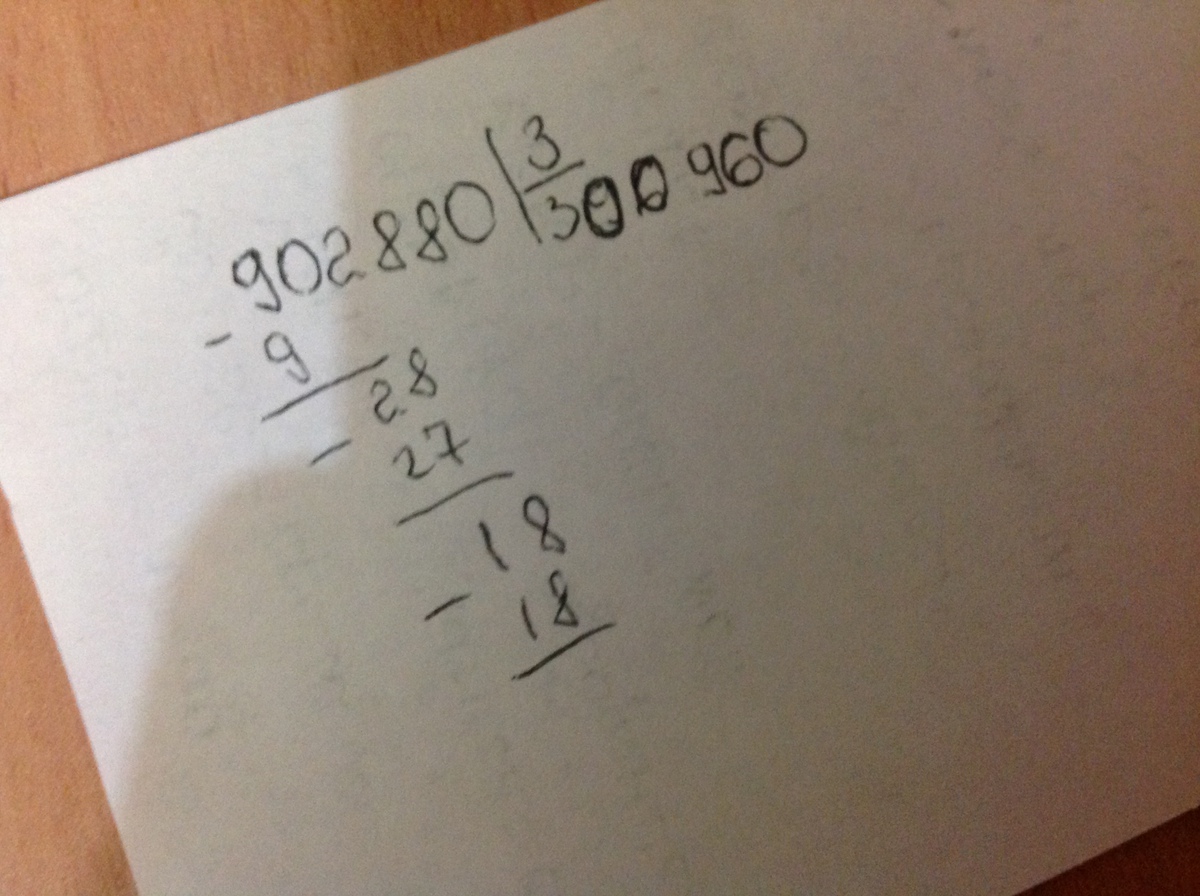 902880 3
300960
- 9
28
- 27
18
- 18